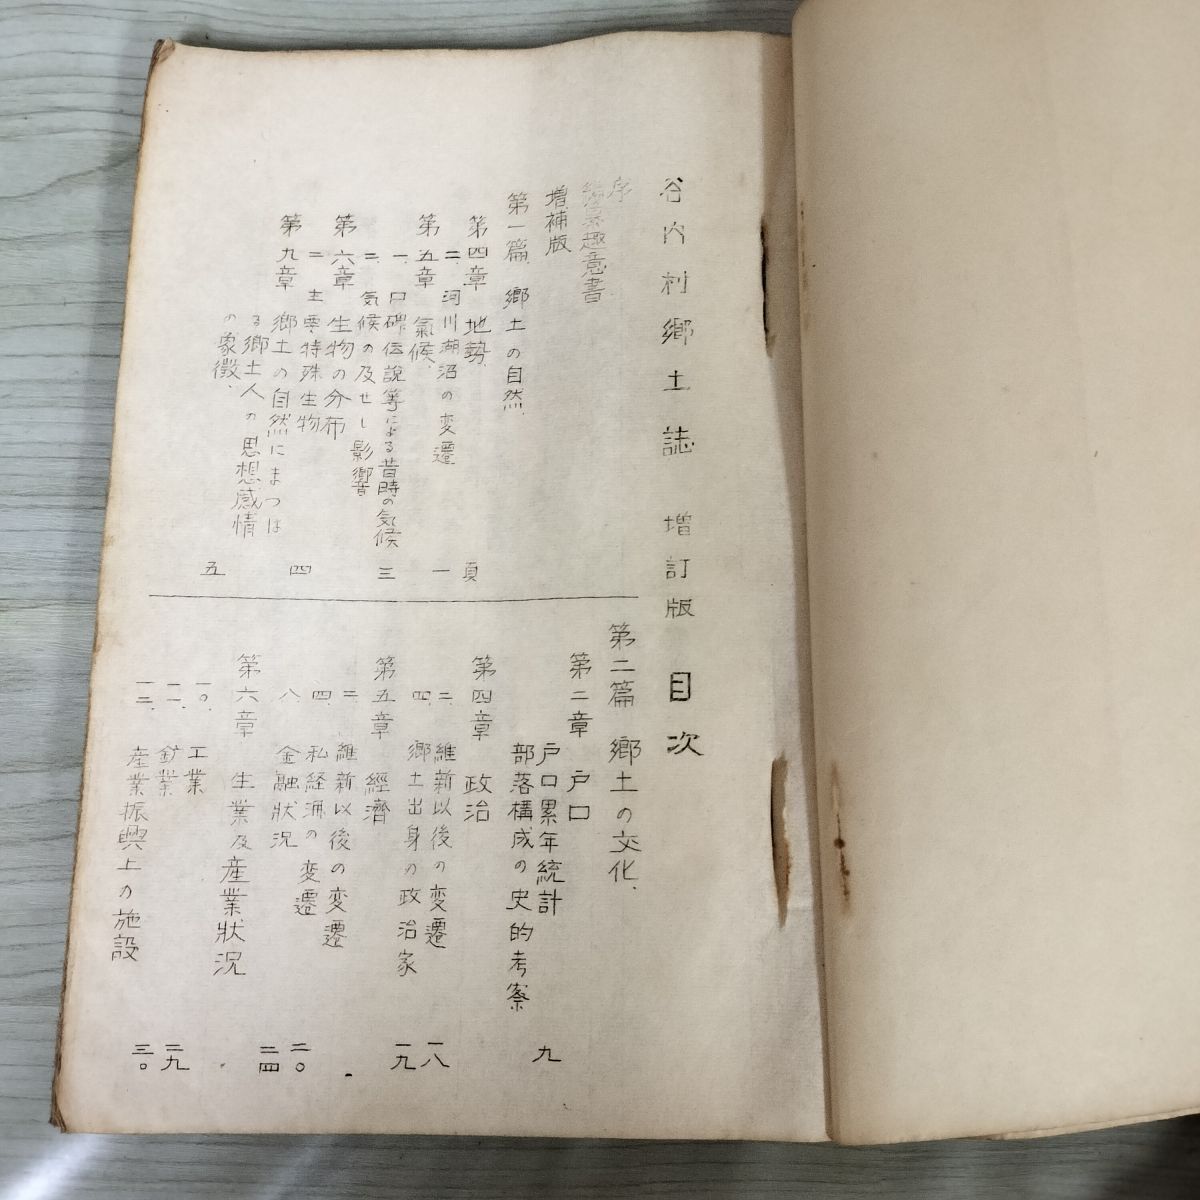 谷内村郷土誌 増訂版 目次
序
趣意書
増補版
第一篇、郷土の自然、
第四章 地勢、 頁
二、河川湖沼の変遷 一
第五章 氣候、
一、口碑伝説等による昔時の気候
二、気候の及せし影響 三
第六章 生物の分布
二 主要特殊生物 四
第九章 郷土の自然にまつは
る郷土人の思想感情
の象徴、 五
第二篇 郷土の文化、
第二章 戸口
戸口累年統計 九
部落構成の史的考察
第四章 政治
二、維新以後の変遷 一八
四、郷土出身の政治家 一九
第五章 經濟
二、維新以後の変遷
四、私経済の変遷 二〇
八、金融状況 二四
第六章 生業及産業状況
一〇、工業
一一、鉱業 二九
一二、産業振興上の施設 三〇